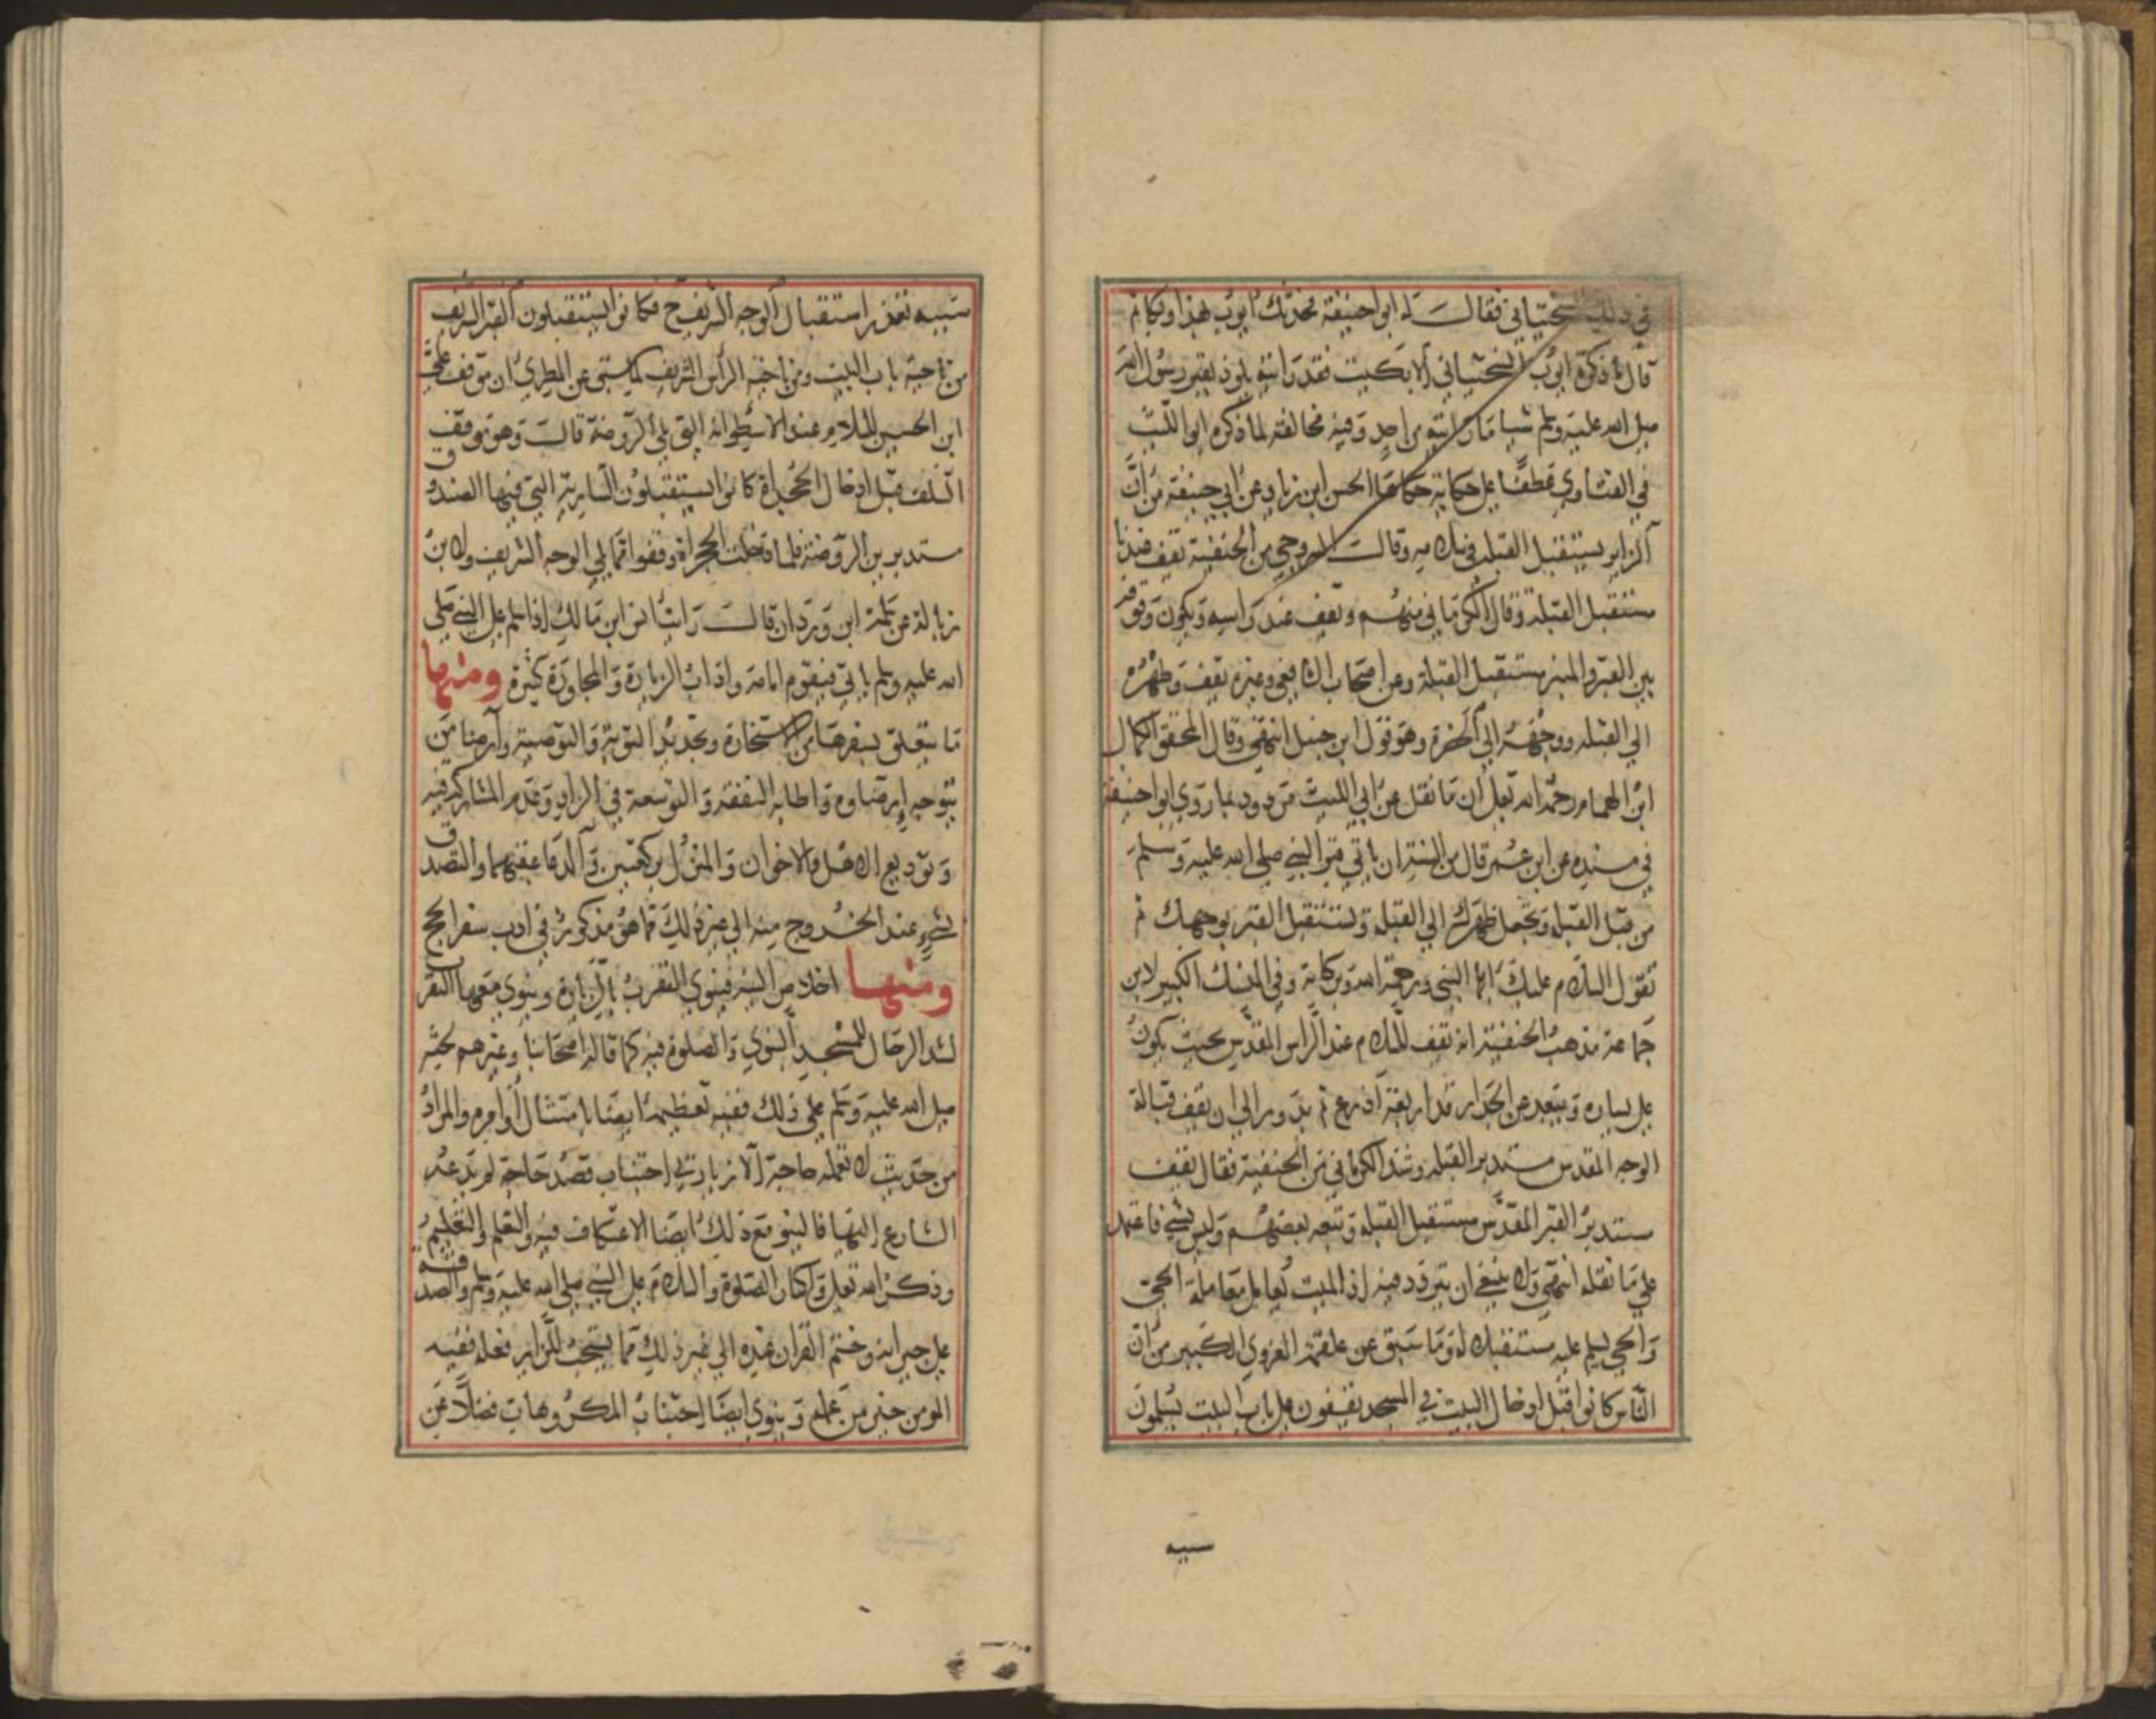 في ذلك السختياني فقال له ابو احنيفة تحدثك ايوب بهذا وبكا ثم
قال ما ذكرت ايوب السختياني الا بكيت فقد رايته يلوذ بقبر رسول الله
صلى الله عليه وسلم شيا ما رايته من احد وفيه مخالفة لما ذكره ابو الليث
في الفتاوى عطفا على حكاية حكاها الحسن ابن زياد عن ابي حنيفة من ان
الزاير يستقبل القبلة في سلامه وقال السروجي من الحنفية تقف عندنا
مستقبل القبلة وقال الكرماني منهم وتقف عند راسه ويكون وقوفه
بين القبر والمنبر مستقبل القبلة وعن اصحاب الشافعي وغيره تقف وظهره
الى القبلة ووجهه الى الحضرة وهو قول ابن حنبل انتهى وقال المحقق الكمال
ابن الهمام رحمه الله تعالى ان ما نقل عن ابي الليث مردود بما روى ابو احنيفة
في مسنده عن ابن عمر قال من السنة ان ياتي قبر النبي صلى الله عليه وسلم
من قبل القبلة وتجعل ظهرك الى القبلة وتستقبل القبر بوجهك ثم
تقول السلام عليك ايها النبي ورحمة الله وبركاته وفي المنسك الكبير لابن
جماعة مذهب الحنفية انه تقف للسلام عند الراس المقدس بحيث يكون
على يساره ويبعد عن الجدار قدر اربعة اذرع ثم يدور الى ان يقف قبالة
الوجه المقدس مستدبر القبلة وشذ الكرماني من الحنفية فقال تقف
مستدبر القبر المقدس مستقبل القبلة وتبعه بعضهم وليس بشي فاعتمد
على ما نقله انتهى ولا ينبغي ان يتردد فيه اذ الميت يعامل معاملة الحي
والحي يسلم عليه مستقبلا له وما سبق عن علقمة الغروي الكبير من ان
الناس كانوا قبل ادخال البيت في المسجد يقفون على باب البيت يسلمون
سببه
سببه تعذر استقبال الوجه الشريف ح فكانوا يستقبلون القبر الشريف
من ناحية باب البيت ومن ناحية الراس الشريف كما سبق عن المطري ان موقف علي
ابن الحسين للسلام عند الاسطوانة التي تلي الروضة قال وهو موقف
السلف قبل ادخال الحجرة كانوا يستقبلون السارية التي فيها الصندوق
مستدبرين الروضة فلما دخلت الحجراة وقفوا مما يلي الوجه الشريف ولابن
زبالة عن سلمة ابن وردان قال رايت انس ابن مالك اذا سلم على النبي صلى
الله عليه وسلم ياتي فيقوم امامه واداب الزيارة والمجاورة كثيرة ومنها
ما يتعلق بسفرها من الاستخارة وتجديد التوبة والتوصية وارضا من
يتوجه ارضاوه واطابة النفقة والتوسعة في الزاد وعدم المشاركة فيه
وتوديع الاهل والاخوان والمنزل بركعتين والدعا عقبهما والتصدق
بشيء عند الخروج منه الى غير ذلك مما هو مذكور في ادب سفر الحج
ومنها اخلاص النية فينوي التقرب بالزيارة وينوي معها التقرب
لشد الرحال للمسجد النبوي والصلوة فيه كما قاله اصحابنا وغيرهم لحثه
صلى الله عليه وسلم على ذلك ففيه تعظيمه ايضا بامتثال اوامره والمراد
من حديث لا تعمله حاجة الا زيارتي اجتناب قصد حاجة لم يدعه
الشارع اليها فالينو مع ذلك ايضا الاعتكاف فيه والتعلم والتعليم
وذكر الله تعالى واكثار الصلوة والسلام على النبي صلى الله عليه وسلم والصدقة
على جيرانه وختم القران عنده الى غير ذلك مما يستحب للزاير فعله ففيه
المومن خير من عمله وينوي ايضا اجتناب المكروهات فضلا عن